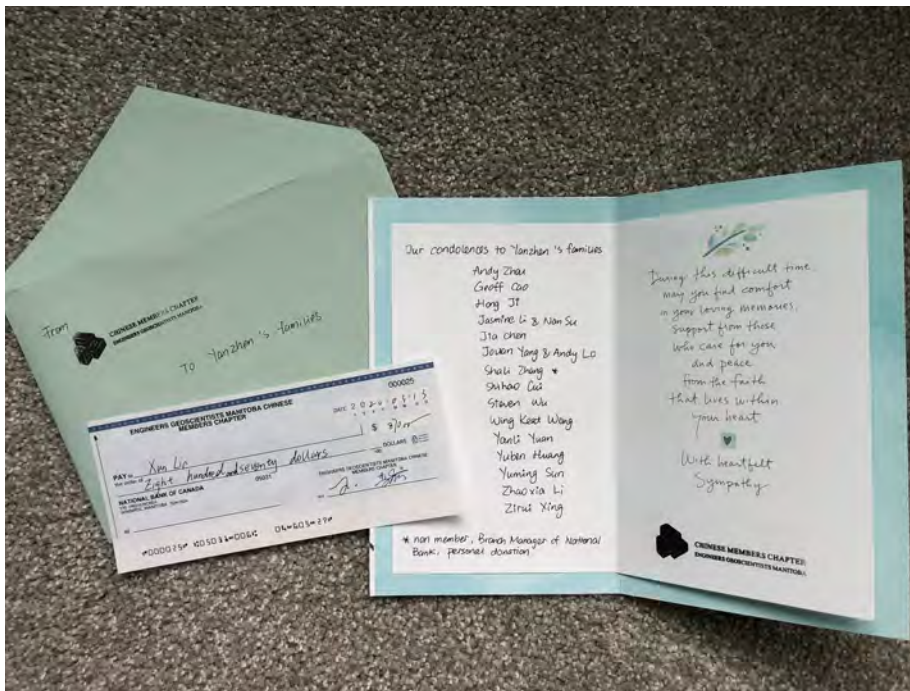 From
CHINESE MEMBERS CHAPTER
ENGINEERS GEOSCIENTISTS MANITOBA
To Yanzhen's families
000025
ENGINEERS GEOSCIENTISTS MANITOBA CHINESE
MEMBERS CHAPTER
DATE 20240515
$ 870.00
PAY TO
the order of
Xun Liu
Eight hundred and seventy dollars
DOLLARS
NATIONAL BANK OF CANADA
05031
ENGINEERS GEOSCIENTISTS MANITOBA CHINESE
MEMBERS CHAPTER
Our condolences to Yanzhen's families
Andy Zhau
Geoff Cao
Hong Ji
Jasmine Li & Nan Su
Jia Chen
Jowan Yang & Andy Lo
Shali Zhang *
Shihao Cui
Steven Wu
Wing Keet Wong
Yanli Yuan
Yuben Huang
Yuming Sun
Zhaoxia Li
Zirui Xing
* non member, Branch Manager of National
Bank, personal donation
During this difficult time
may you find comfort
in your loving memories,
support from those
who care for you
and peace
from the faith
that lives within
your heart
With heartfelt
Sympathy
CHINESE MEMBERS CHAPTER
ENGINEERS GEOSCIENTISTS MANITOBA